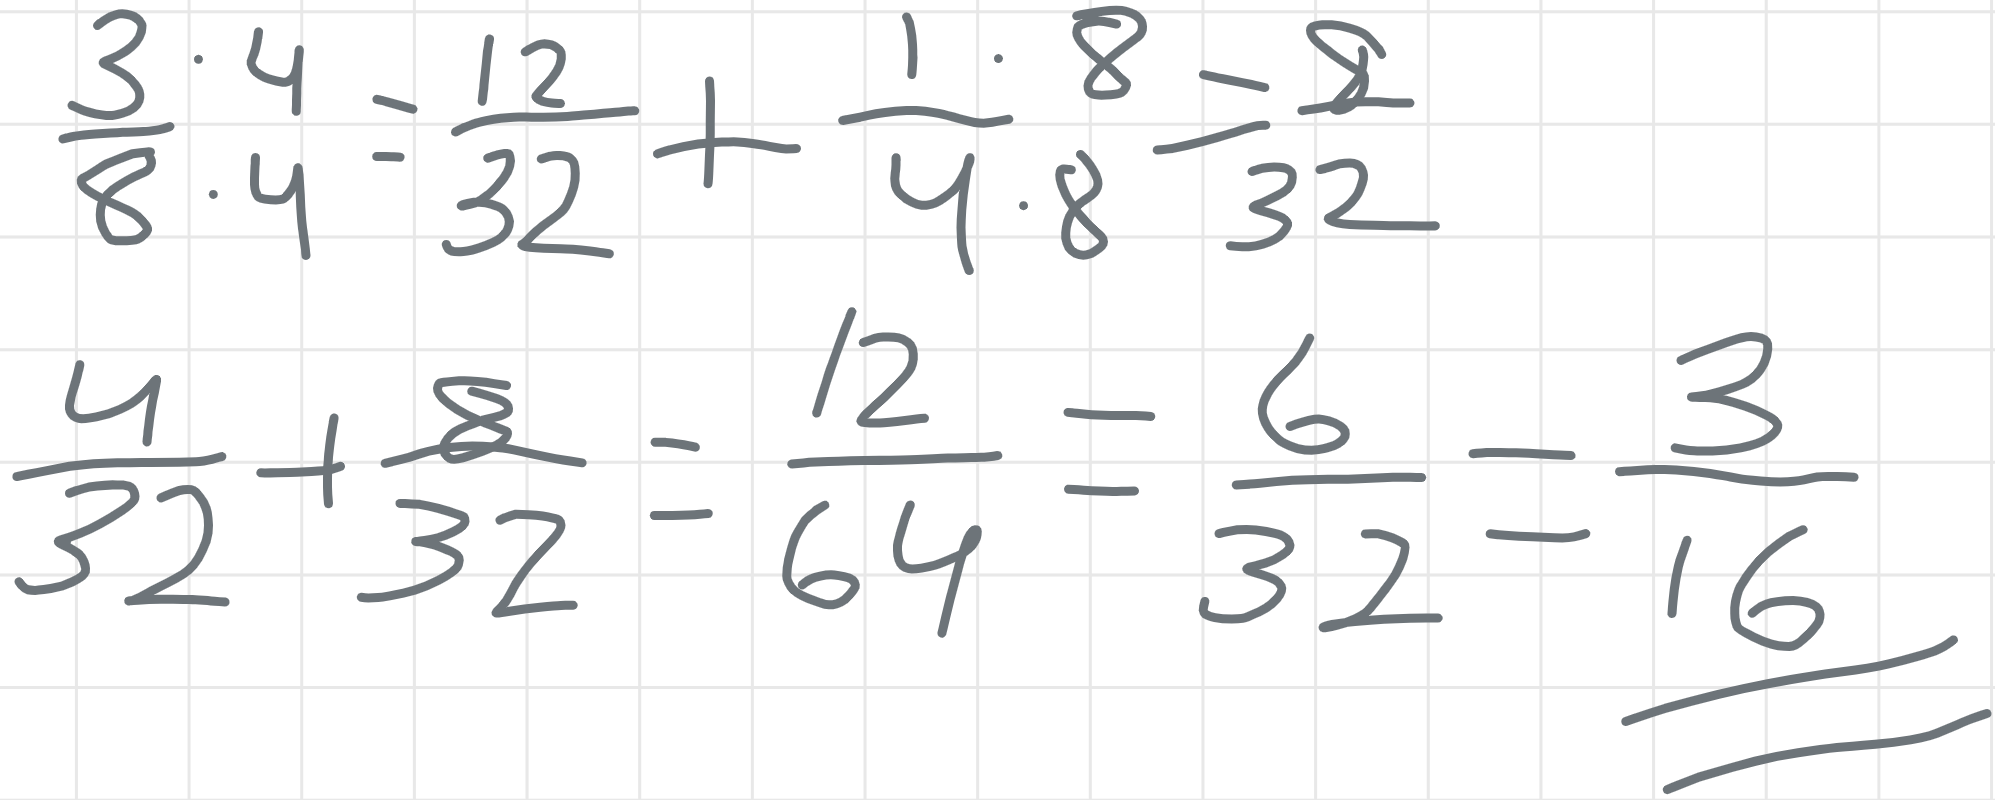 3/8 · 4/4 = 12/32 + 1/4 · 8/8 = 8/32
4/32 + 8/32 = 12/64 = 6/32 = 3/16